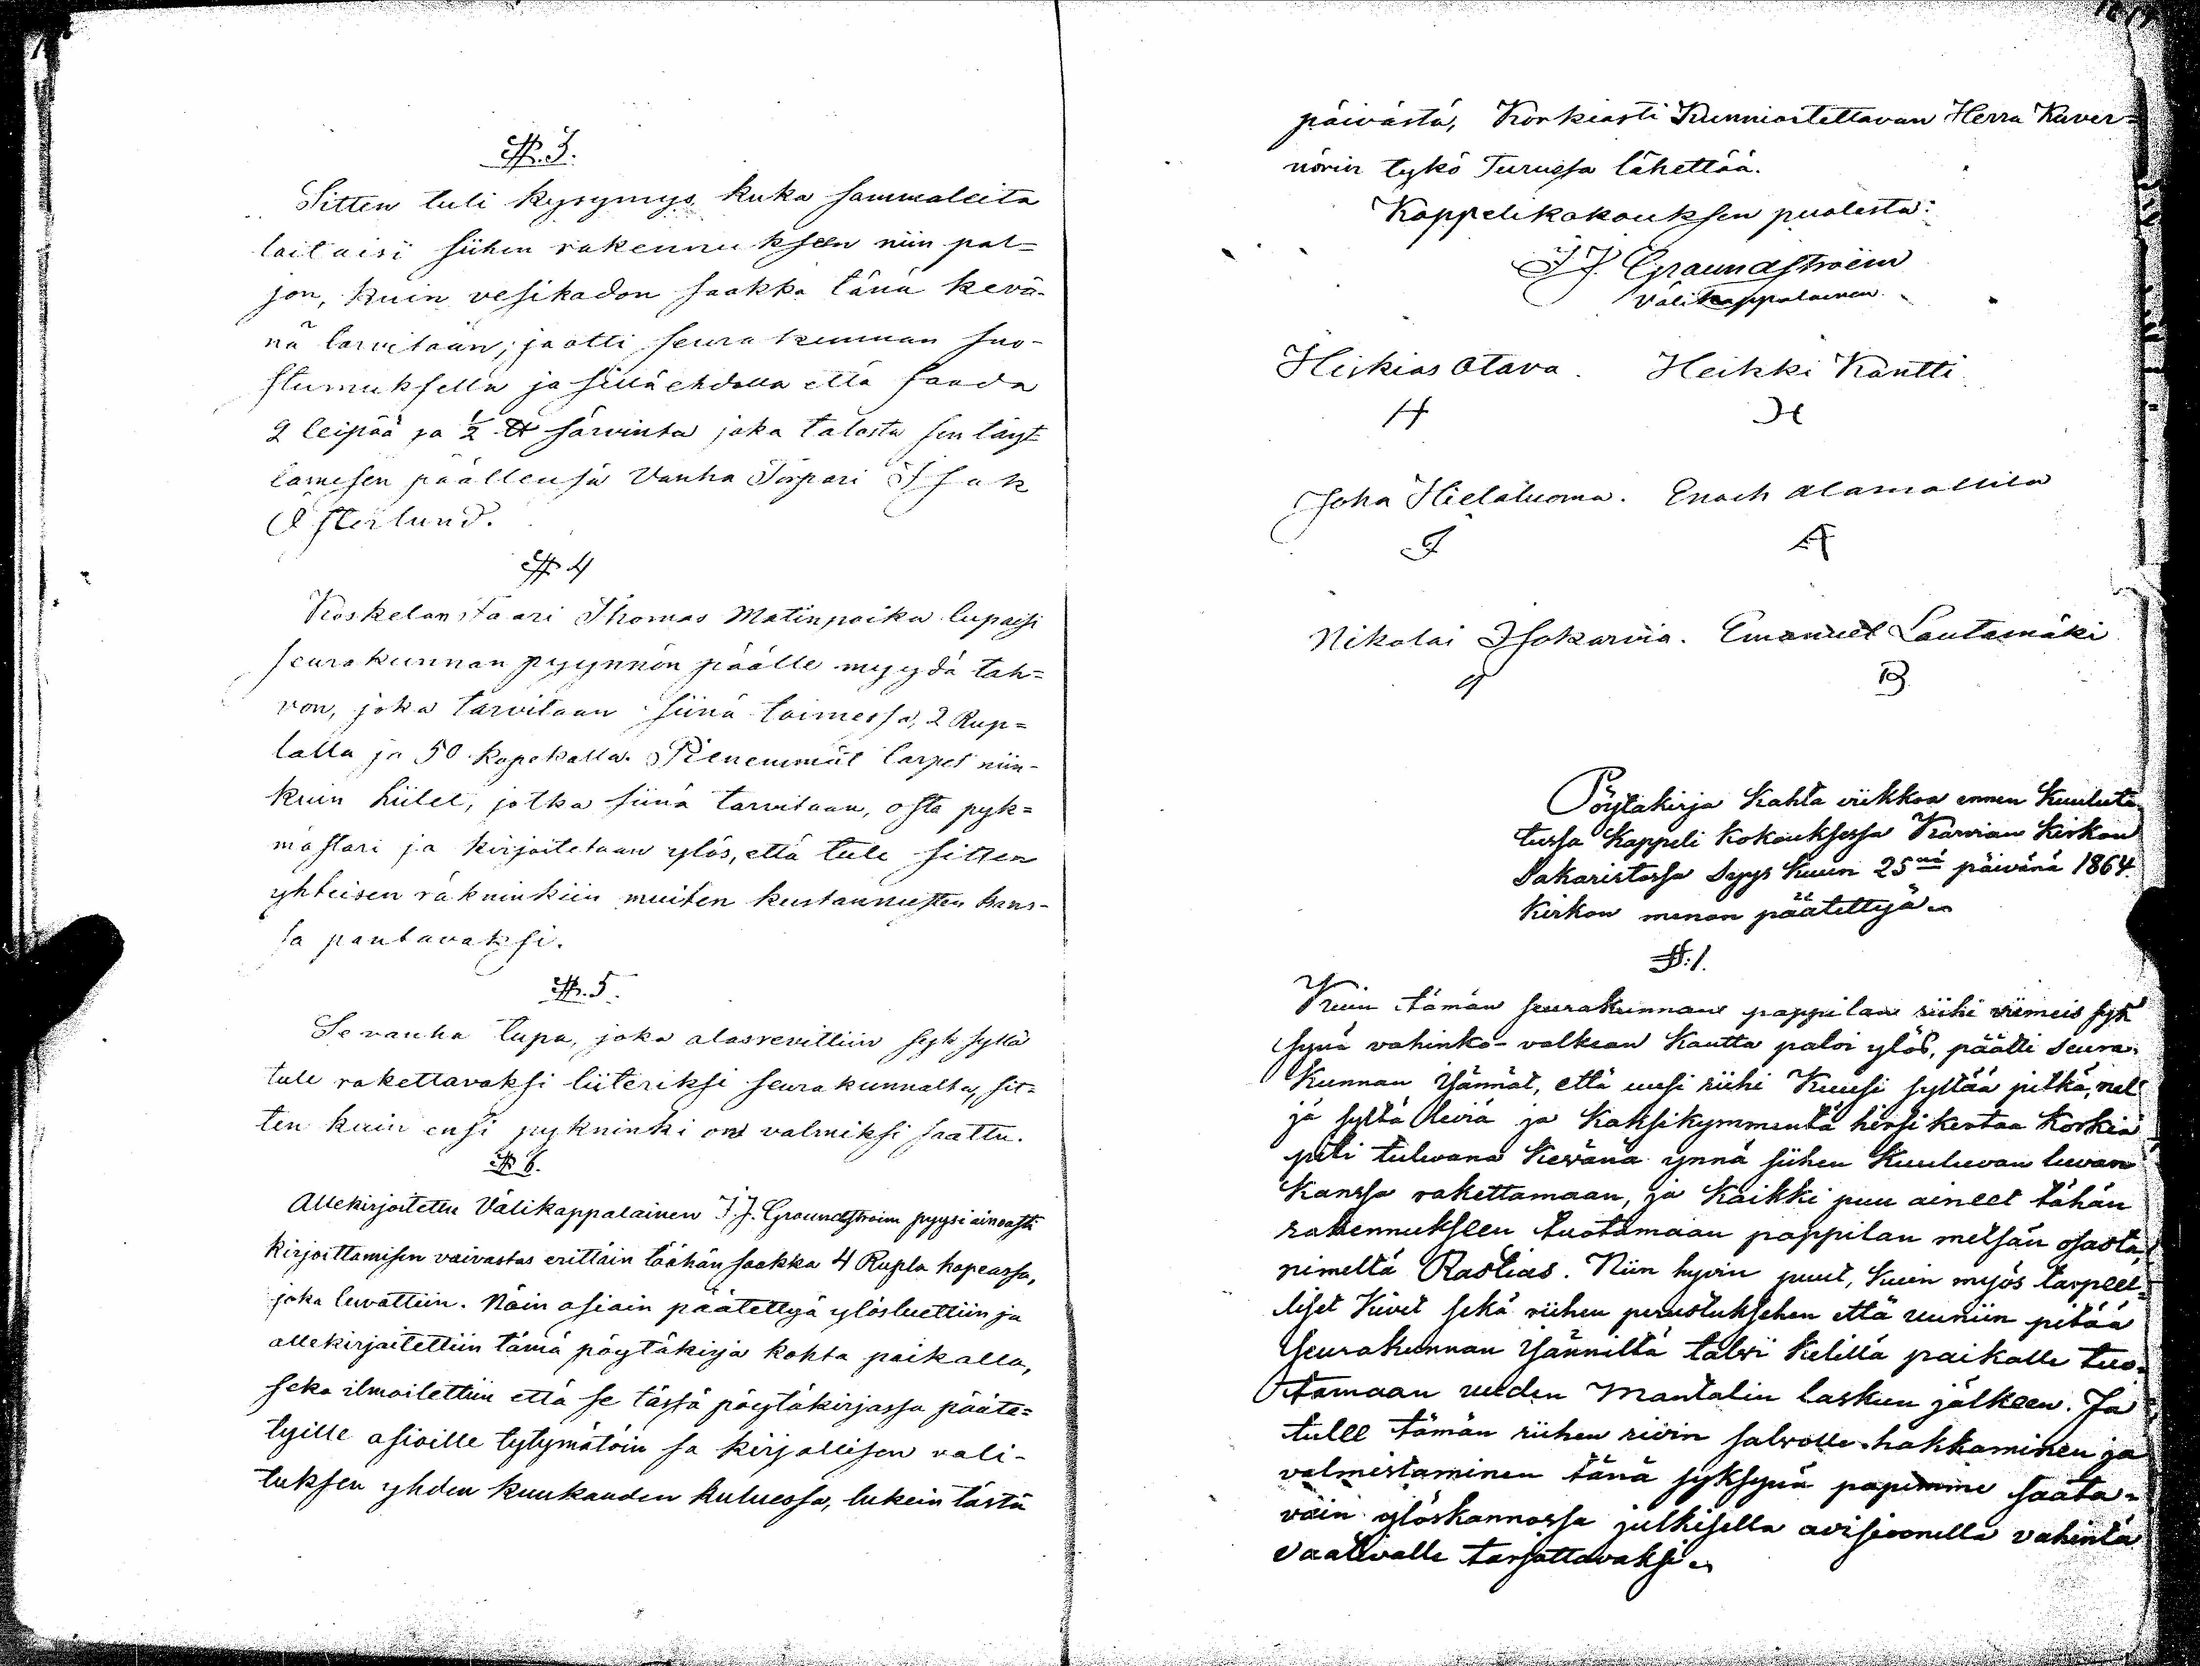 §. 3.
Sitten tuli kysymys kuka sammaleita
laitaisi siihen rakennukseen niin pal=
jon, kuin vesikadon saakka tänä kevä-
nä tarvitaan; ja otti seurakunnan suo-
stumuksella ja sillä ehdolla että saada
2 leipää ja ½ ℔ särvintä joka talosta sen täyt=
tamisen päällensä Vanha Torpari Isak
Österlund.
§ 4
Koskelan Faari Thomas Matinpoika lupaisi
seurakunnan pyynnön päälle myydä tah=
von, joka tarvitaan siinä toimessa, 2 Rup=
lalla ja 50 kopekalla. Pienemmät tarpet niin-
kuin hiilet, jotka siinä tarvitaan, osta pyk=
mästari ja kirjoitetaan ylös, että tule sitten
yhteisen räkninkiin muiten kustannusten kans-
sa pantavaksi.
§. 5.
Se vanha tupa, joka alasrevittiin syksyllä
tule rakettavaksi liiteriksi seurakunnalta, sit=
ten kuin ensi pykninki on valmiksi saattu.
§ 6.
Allekirjoitettu Välikappalainen J. J. Graundstroim pyysi ainoasti
kirjoittamisen vaivastas erittäin tähän saakka 4 Rupla hopeassa,
joka luvattiin. Näin asiain päätettyä ylösluettiin ja
allekirjoitettiin tämä pöytäkirja kohta paikalla,
sekä ilmoitettiin että se tässä pöytäkirjassa pääte=
tyille asioille tytymätöin sa kirjallisen vali-
tuksen yhden kuukauden kuluessa, lukein tästä
päivästä, Korkiasti Kunnioitettavan Herra Kuver=
nörin tykö Turussa lähettää.
Kappelikokouksen puolesta:
J J. Graundstroim
Välikappalainen.
Hiskias Otava. Heikki Kantti
H H
Joha Hietaluoma. Enoch Alamallila
I A
Nikolai Isokarvia. Emanuel Lautamäki
B
Pöytäkirja Kahta viikkoa ennen kuuluti
tussa Kappeli kokouksessa Karvian Kirkon
Sakaristossa Syys kuun 25nä päivänä 1864
Kirkon menon päätettyä.
§. 1.
Kuin tämän seurakunnan pappilan riihi viimeis syk
synä vahinko-valkean Kautta paloi ylös, päätti Seura-
kunnan Isännät, että uusi riihi Kuusi syltää pitkä, nel
jä syltä leviä ja Kaksikymmentä hirsi kertaa korkia
piti tulevana Keväna ynnä siihen Kuuluvan luvan
Kanssa rakettamaan, ja Kaikki puu aineet tähän
rakennukseen tuotamaan pappilan metsän osasta,
nimeltä Rastias. Niin hyvin puut, kuin myös tarpeel=
liset Kivet sekä riihen perustuksehen että uuniin pitää
Seurakunnan Isänniltä talvi Kelillä paikalle tuo=
tamaan uuden Mantalin laskun jälkeen. Ja
tulee tämän riihen riivin salvolle hakkaminen ja
valmistaminen tänä syksynä papimme saata=
vain ylöskannossa julkisella avisioonilla vahintä
vaativalle tarjottavaksi.